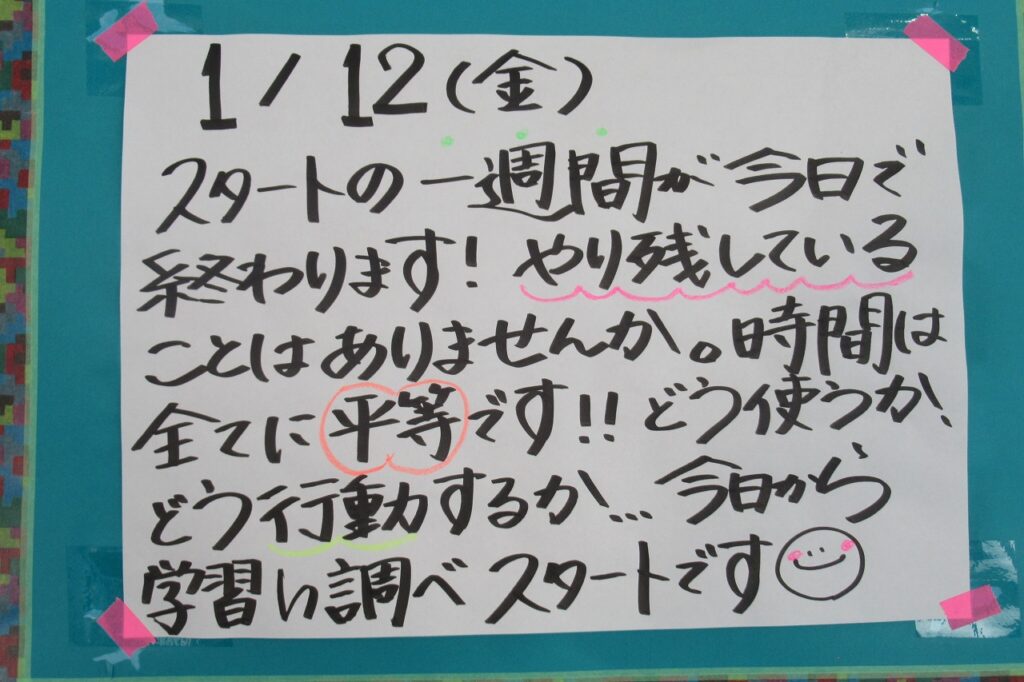 1/12(金)
スタートの一週間が今日で
終わります!やり残している
ことはありませんか。時間は
全てに平等です!!どう使うか、
どう行動するか…今日から
学習い調べスタートです